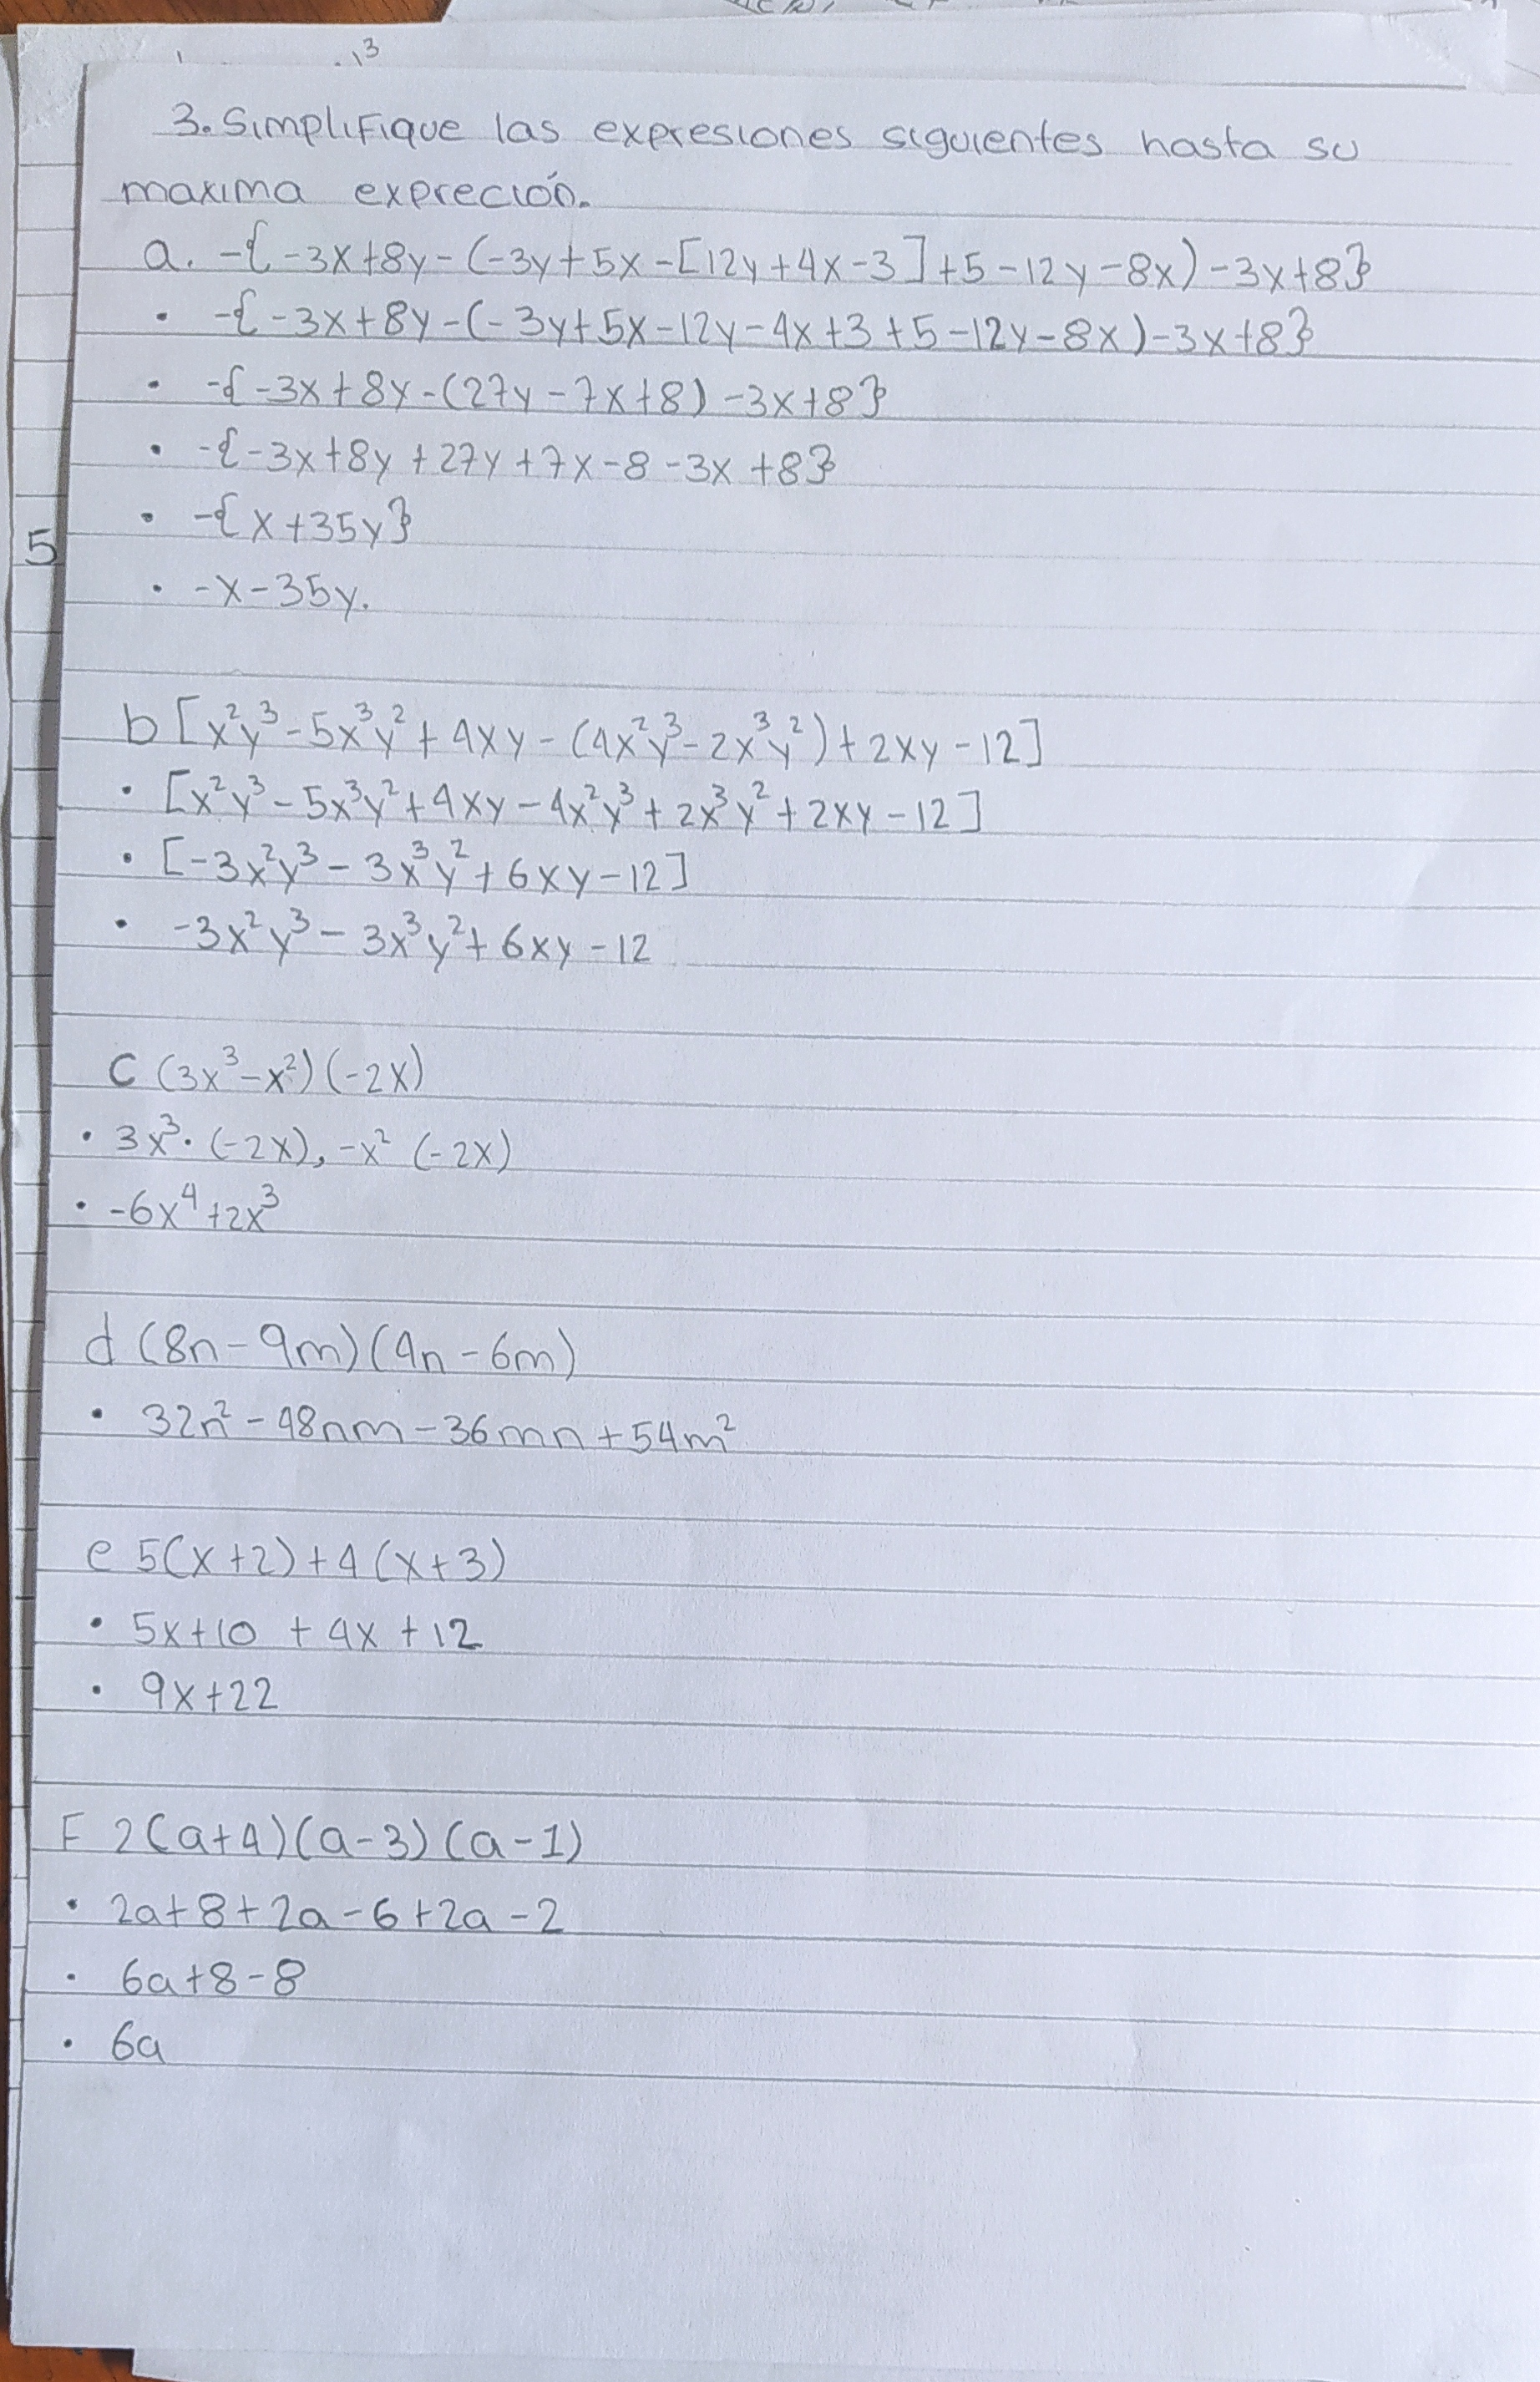 3
3. Simplifique las expresiones siguientes hasta su
maxima expreción.
a. -{-3x+8y-(-3y+5x-[12y+4x-3]+5-12y-8x)-3x+8}
• -{-3x+8y-(-3y+5x-12y-4x+3+5-12y-8x)-3x+8}
• -{-3x+8y-(27y-7x+8)-3x+8}
• -{-3x+8y+27y+7x-8-3x+8}
• -{x+35y}
5
• -x-35y.
b [x²y³-5x³y²+4xy-(4x²y³-2x³y²)+2xy-12]
• [x²y³-5x³y²+4xy-4x²y³+2x³y²+2xy-12]
• [-3x²y³-3x³y²+6xy-12]
• -3x²y³-3x³y²+6xy-12
c (3x³-x²)(-2x)
• 3x³·(-2x), -x²(-2x)
• -6x⁴+2x³
d (8n-9m)(4n-6m)
• 32n²-48nm-36mn+54m²
e 5(x+2)+4(x+3)
• 5x+10+4x+12
• 9x+22
F 2(a+4)(a-3)(a-1)
• 2a+8+2a-6+2a-2
• 6a+8-8
• 6a